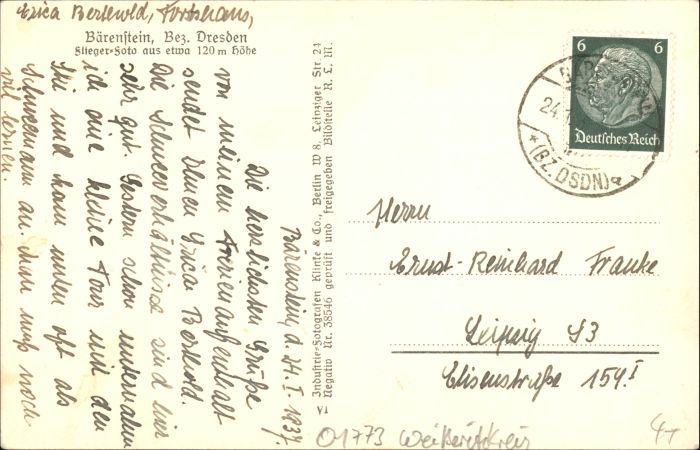 Erica Berkold, Forsthaus,
Bärenstein, Bez. Dresden
Flieger-Foto aus etwa 120 m Höhe
Bärenstein, d. 24. I. 1937.
Die herzlichsten Grüße
von meinem Ferienaufenthalt
sendet Ihnen Erica Berkold.
Die Schneeverhältnisse sind hier
sehr gut. Gestern schon unternahm
ich eine kleine Tour mit den
Ski und kam unten oft als
Schneemann an. Man muß noch
viel lernen.
Industrie-Fotografen Klinke & Co., Berlin W 8, Leipziger Str. 24
Negativ Nr. 38546 geprüft und freigegeben Bildstelle R. L. M.
VI
6 6
Deutsches Reich
24.
* (BZ. DSDN) a
Herrn
Ernst-Reinhard Franke
Leipzig S3
Elisenstraße 154 I
01773 Weißeritzkreis
4,-